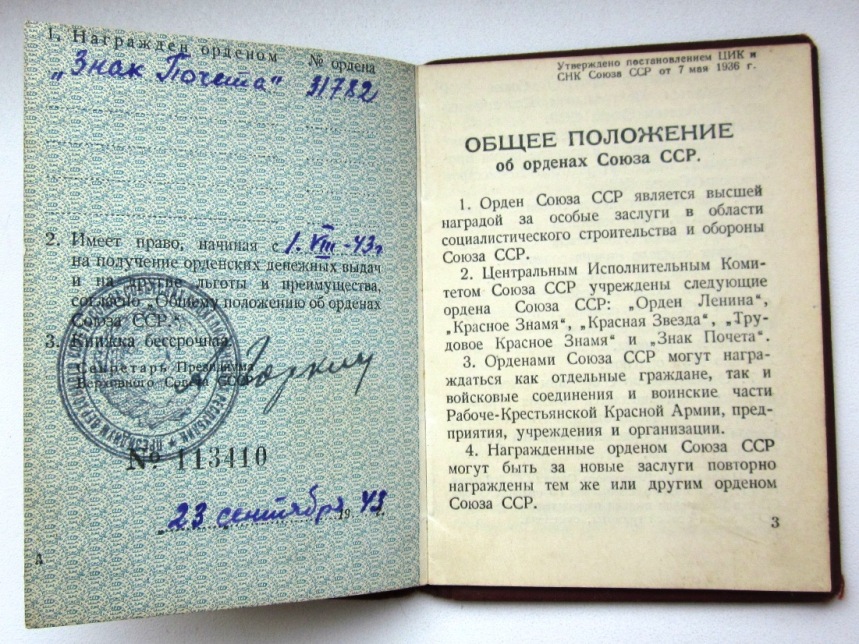 1. Награжден орденом № ордена
„Знак Почета“ 31782
2. Имеет право, начиная с 1.VIII-43г
на получение орденских денежных выдач
и на другие льготы и преимущества,
согласно „Общему положению об орденах
Союза ССР.“
3. Книжка бессрочна.
Секретарь Президиума
Верховного Совета СССР
А Горкин
№ 113410
23 сентября 1943
Утверждено постановлением ЦИК и
СНК Союза ССР от 7 мая 1936 г.
ОБЩЕЕ ПОЛОЖЕНИЕ
об орденах Союза ССР.
1. Орден Союза ССР является высшей
наградой за особые заслуги в области
социалистического строительства и обороны
Союза ССР.
2. Центральным Исполнительным Коми-
тетом Союза ССР учреждены следующие
ордена Союза ССР: „Орден Ленина“,
„Красное Знамя“, „Красная Звезда“, „Тру-
довое Красное Знамя“ и „Знак Почета“.
3. Орденами Союза ССР могут награ-
ждаться как отдельные граждане, так и
войсковые соединения и воинские части
Рабоче-Крестьянской Красной Армии, пред-
приятия, учреждения и организации.
4. Награжденные орденом Союза ССР
могут быть за новые заслуги повторно
награждены тем же или другим орденом
Союза ССР.
3